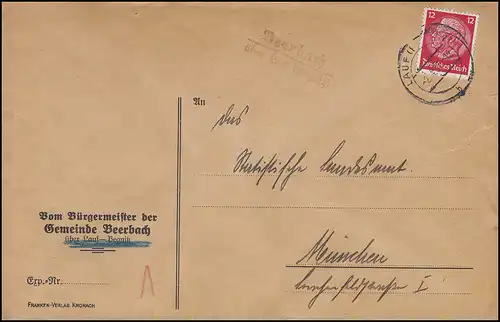 12 12
Deutsches Reich
LAUF
Beerbach
über
An
das
Statistische Landesamt.
München
I
Vom Bürgermeister der
Gemeinde Beerbach
über Lauf—Pegnitz
Exp.-Nr.
FRANKEN-VERLAG KRONACH